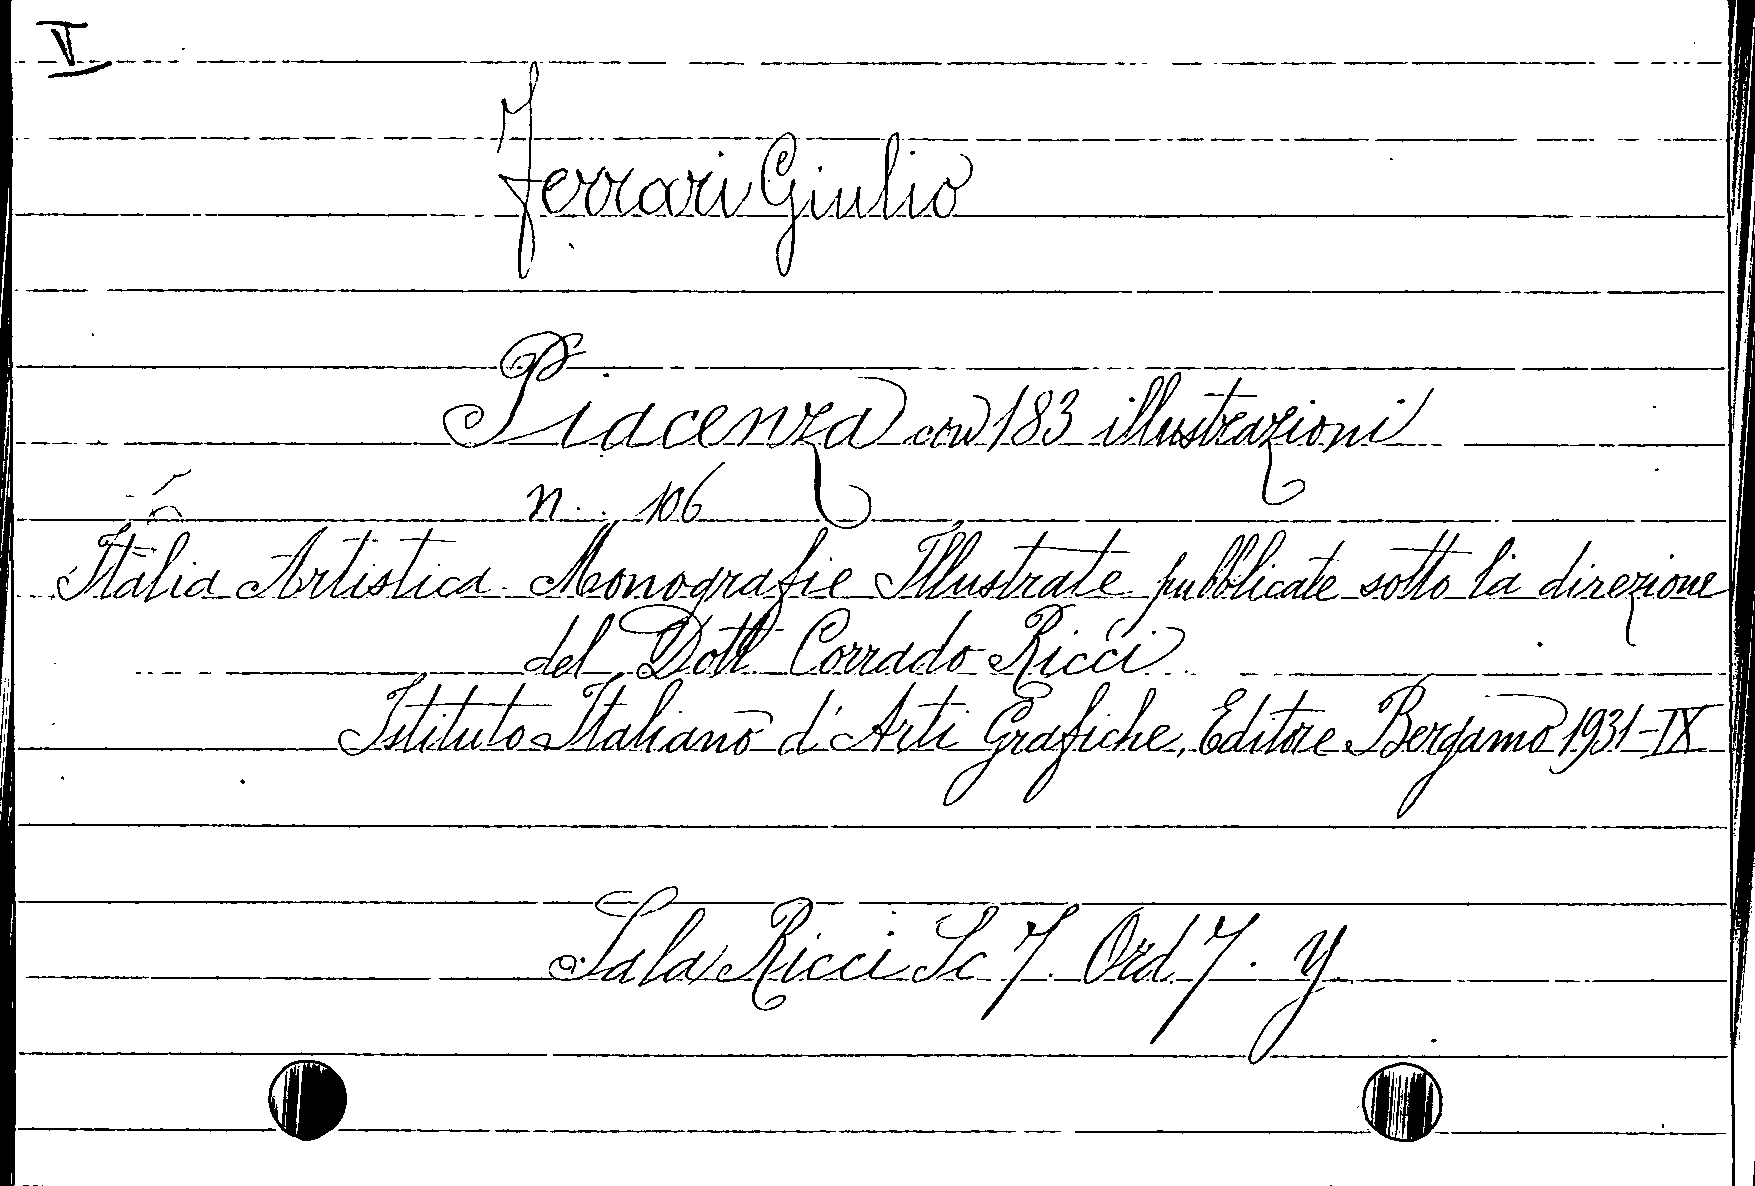 V
Ferrari Giulio
Piacenza con 183 illustrazioni
n. 106
Italia Artistica Monografie Illustrate pubblicate sotto la direzione
del Dott. Corrado Ricci
Istituto Italiano d'Arti Grafiche, Editore Bergamo 1931-IX
Sala Ricci Sc 7 Ord 7. y